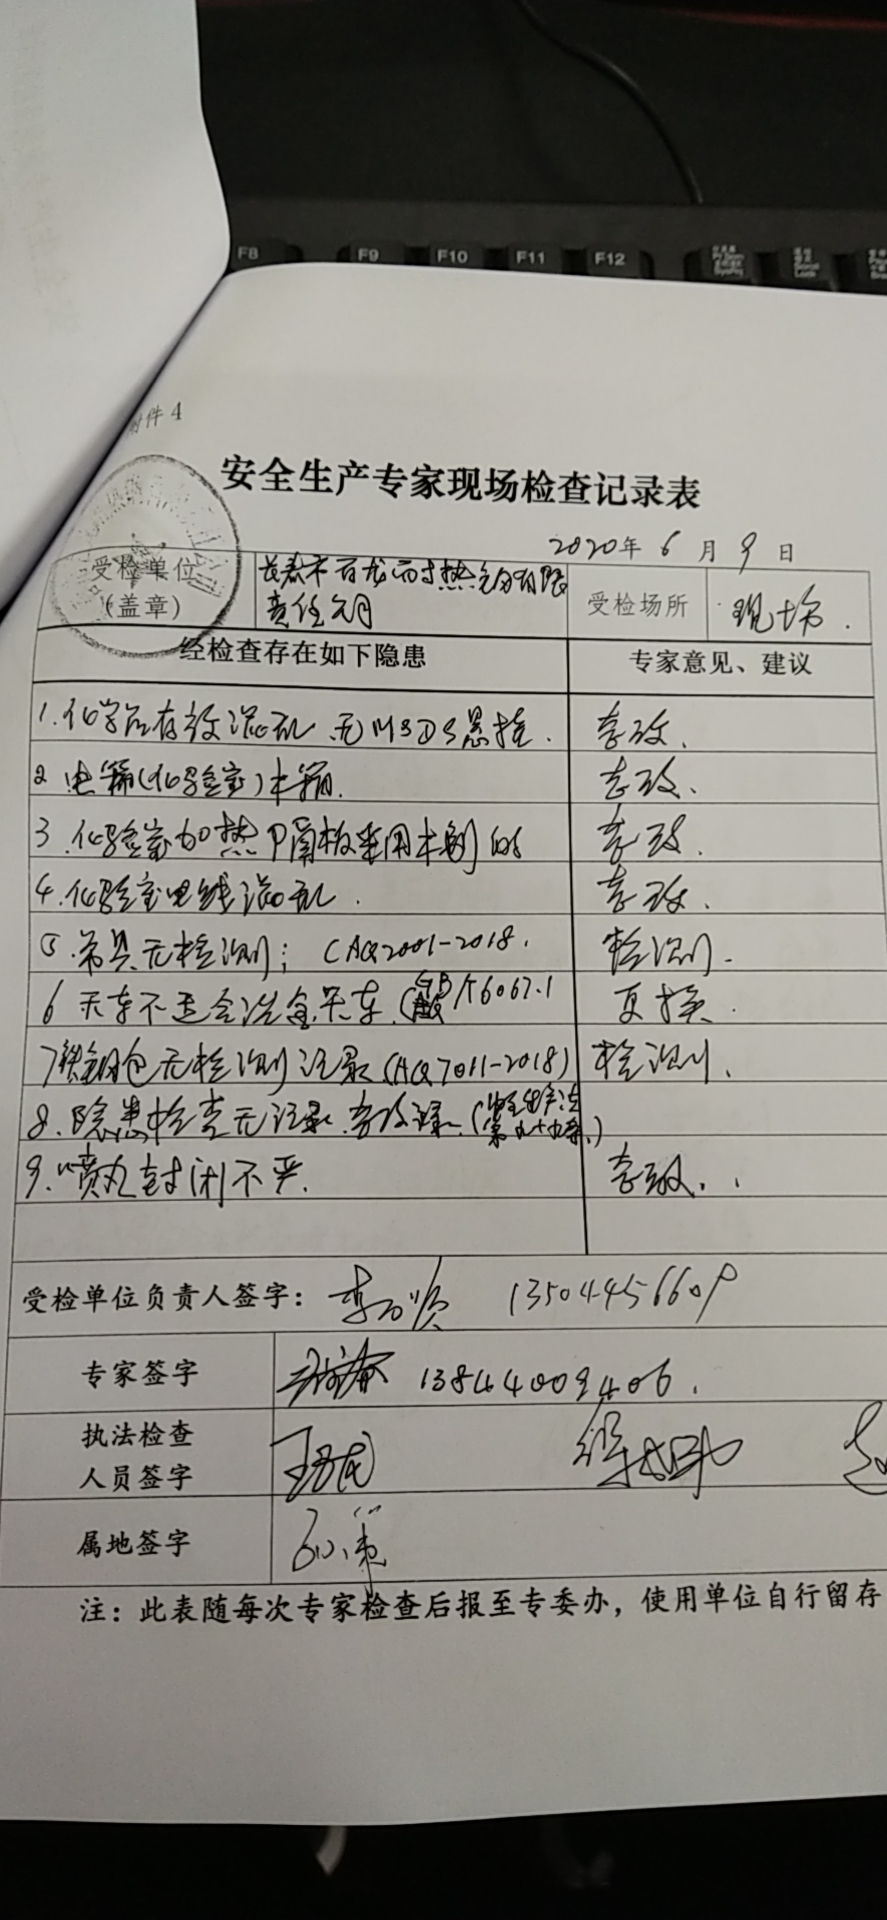 F8 F9 F10 F11 F12
附件 4
安全生产专家现场检查记录表
2020年 6 月 9 日
受检单位
(盖章)
长春市百龙耐热
责任公司
受检场所
现场.
经检查存在如下隐患
专家意见、建议
1.化学品存放混乱 无MSDS悬挂.
整改.
2 电箱(化验室)木箱.
整改.
3.化验室加热 隔板采用木制的
整改.
4.化验室电线混乱.
整改.
5.吊具无检测; (AQ2001-2018.
检测.
6 天车不适合冶金天车.(GB/T6067.1
更换.
7铁钢包无检测记录(AQ7011-2018)
检测.
8.隐患检查无记录.整改 (安全生产法
第九十九条.)
9.喷丸封闭不严.
整改..
受检单位负责人签字:
13504456609
专家签字
13844009406.
执法检查
人员签字
属地签字
注:此表随每次专家检查后报至专委办,使用单位自行留存